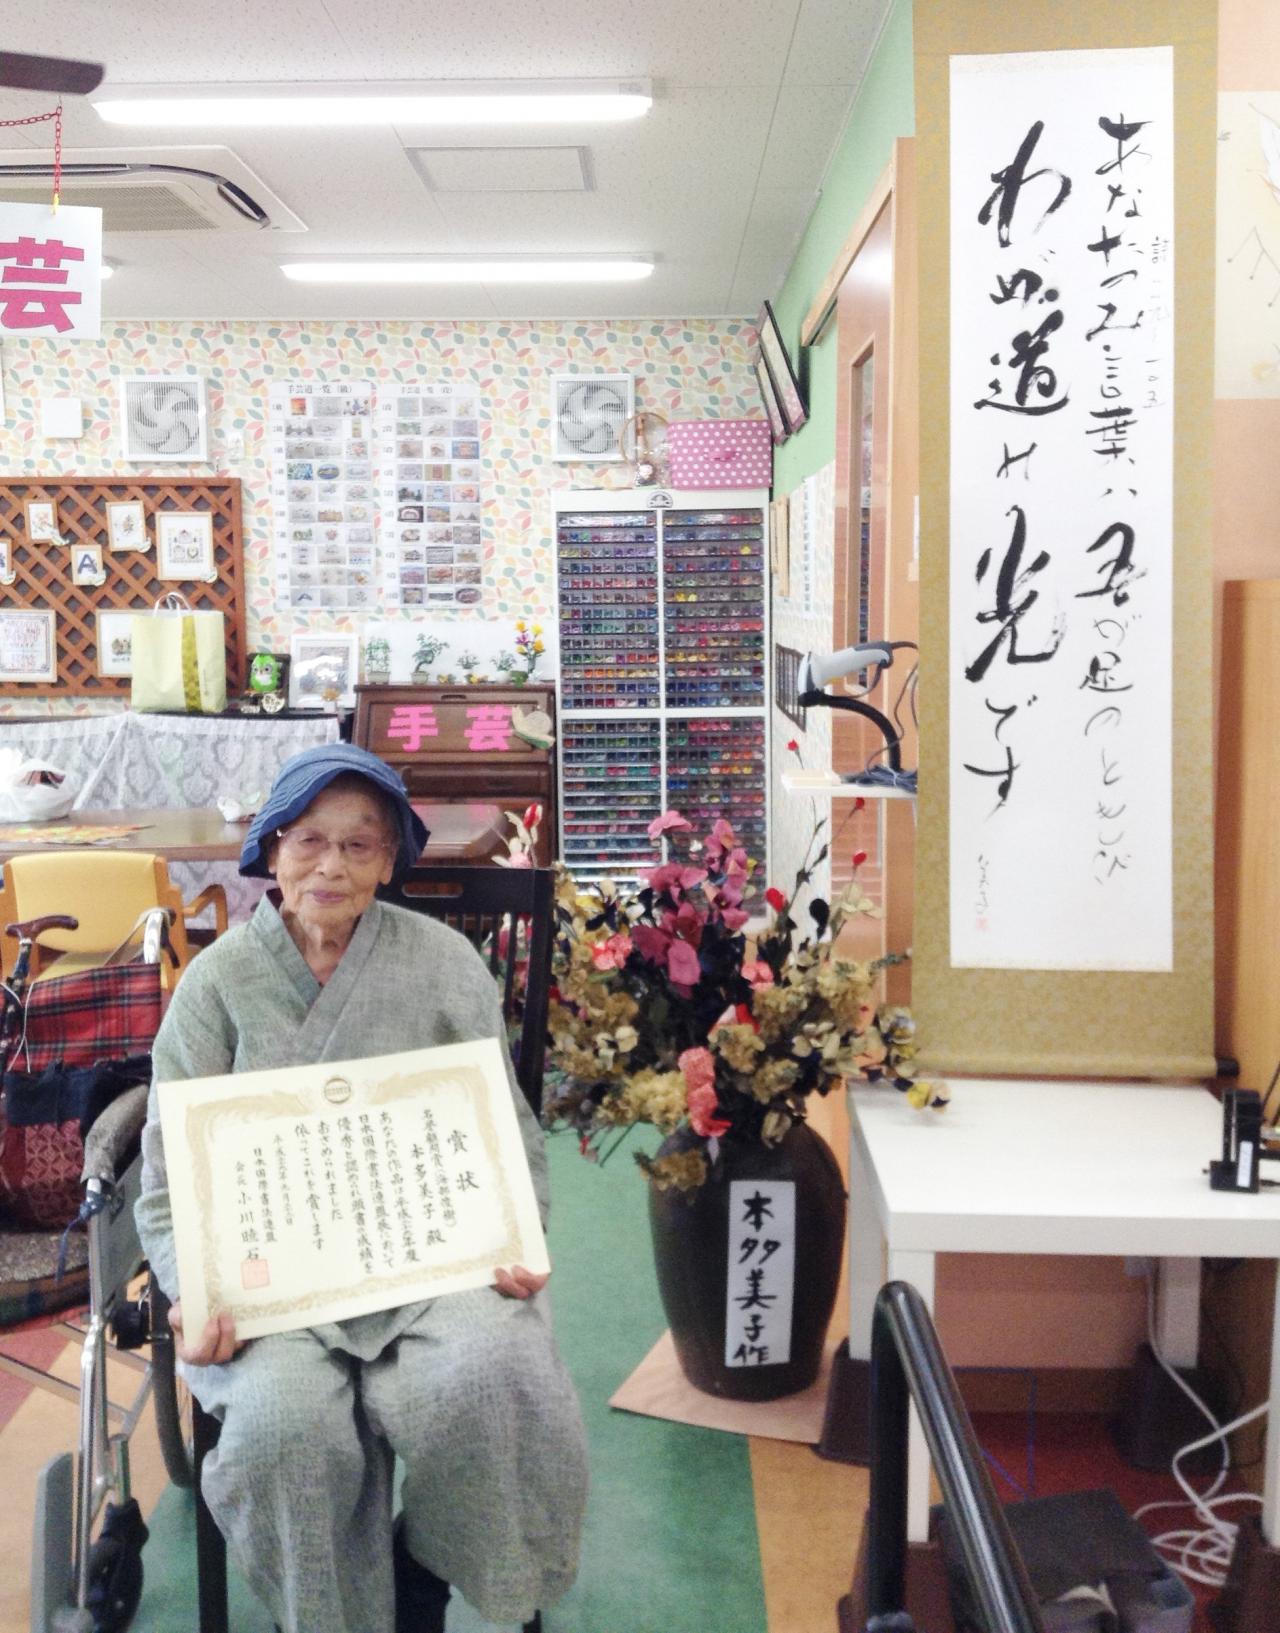 あなたのみ言葉ハ吾が足のともしび
詩一一九-一〇五
わが道の光です
芸
手芸道一覧(級)
手芸道一覧(段)
手芸
A
A
賞状
名誉顧問賞(海部俊樹)
本多美子殿
あなたの作品は平成二六年度
日本国際書法連盟展において
優秀と認められ頭書の成績を
おさめられました
依ってこれを賞します
日本国際書法連盟
会長 小川暁石
本多美子作